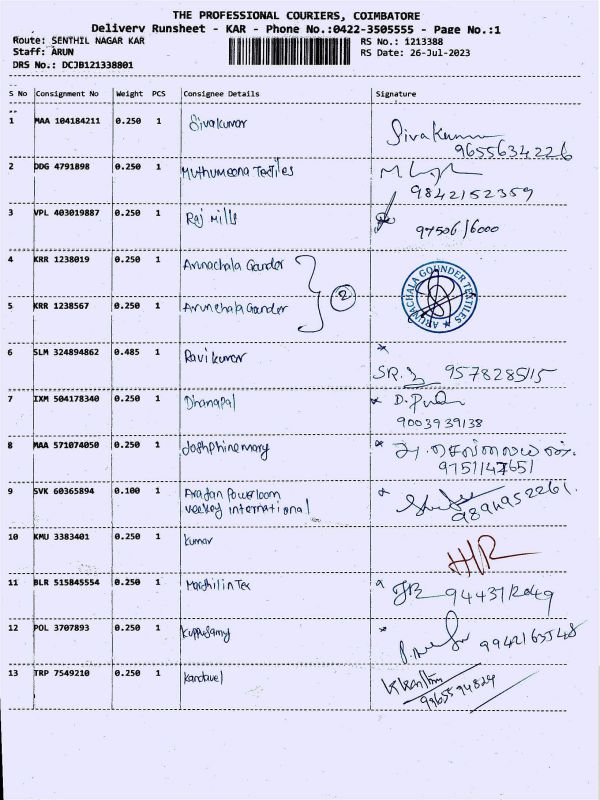 THE PROFESSIONAL COURIERS, COIMBATORE
Delivery Runsheet - KAR - Phone No.:0422-3505555 - Page No.:1
Route: SENTHIL NAGAR KAR RS No.: 1213388
Staff: ARUN RS Date: 26-Jul-2023
DRS No.: DCJB121338801
S No Consignment No Weight PCS Consignee Details Signature
1 MAA 104184211 0.250 1 Sivakumar Sivakumar
9655634226
2 DDG 4791898 0.250 1 Muthumeena Textiles
9842152359
3 VPL 403019887 0.250 1 Raj Mills 97506 16000
4 KRR 1238019 0.250 1 Arunachala Gander
2
ARUNACHALA GOUNDER TEXTILES
5 KRR 1238567 0.250 1 Arunchala Gander
6 SLM 324894862 0.485 1 Ravi kumar
9578285115
7 IXM 504178340 0.250 1 Dhanapal
9003939138
8 MAA 571074050 0.250 1 Joshphinemary
9751147651
9 SVK 60365894 0.100 1 Powerloom
international
10 KMU 3383401 0.250 1 Kumar
11 BLR 515845554 0.250 1 9443112049
12 POL 3707893 0.250 1 Kuppusamy
9942163548
13 TRP 7549210 0.250 1 Kandavel
9865594829